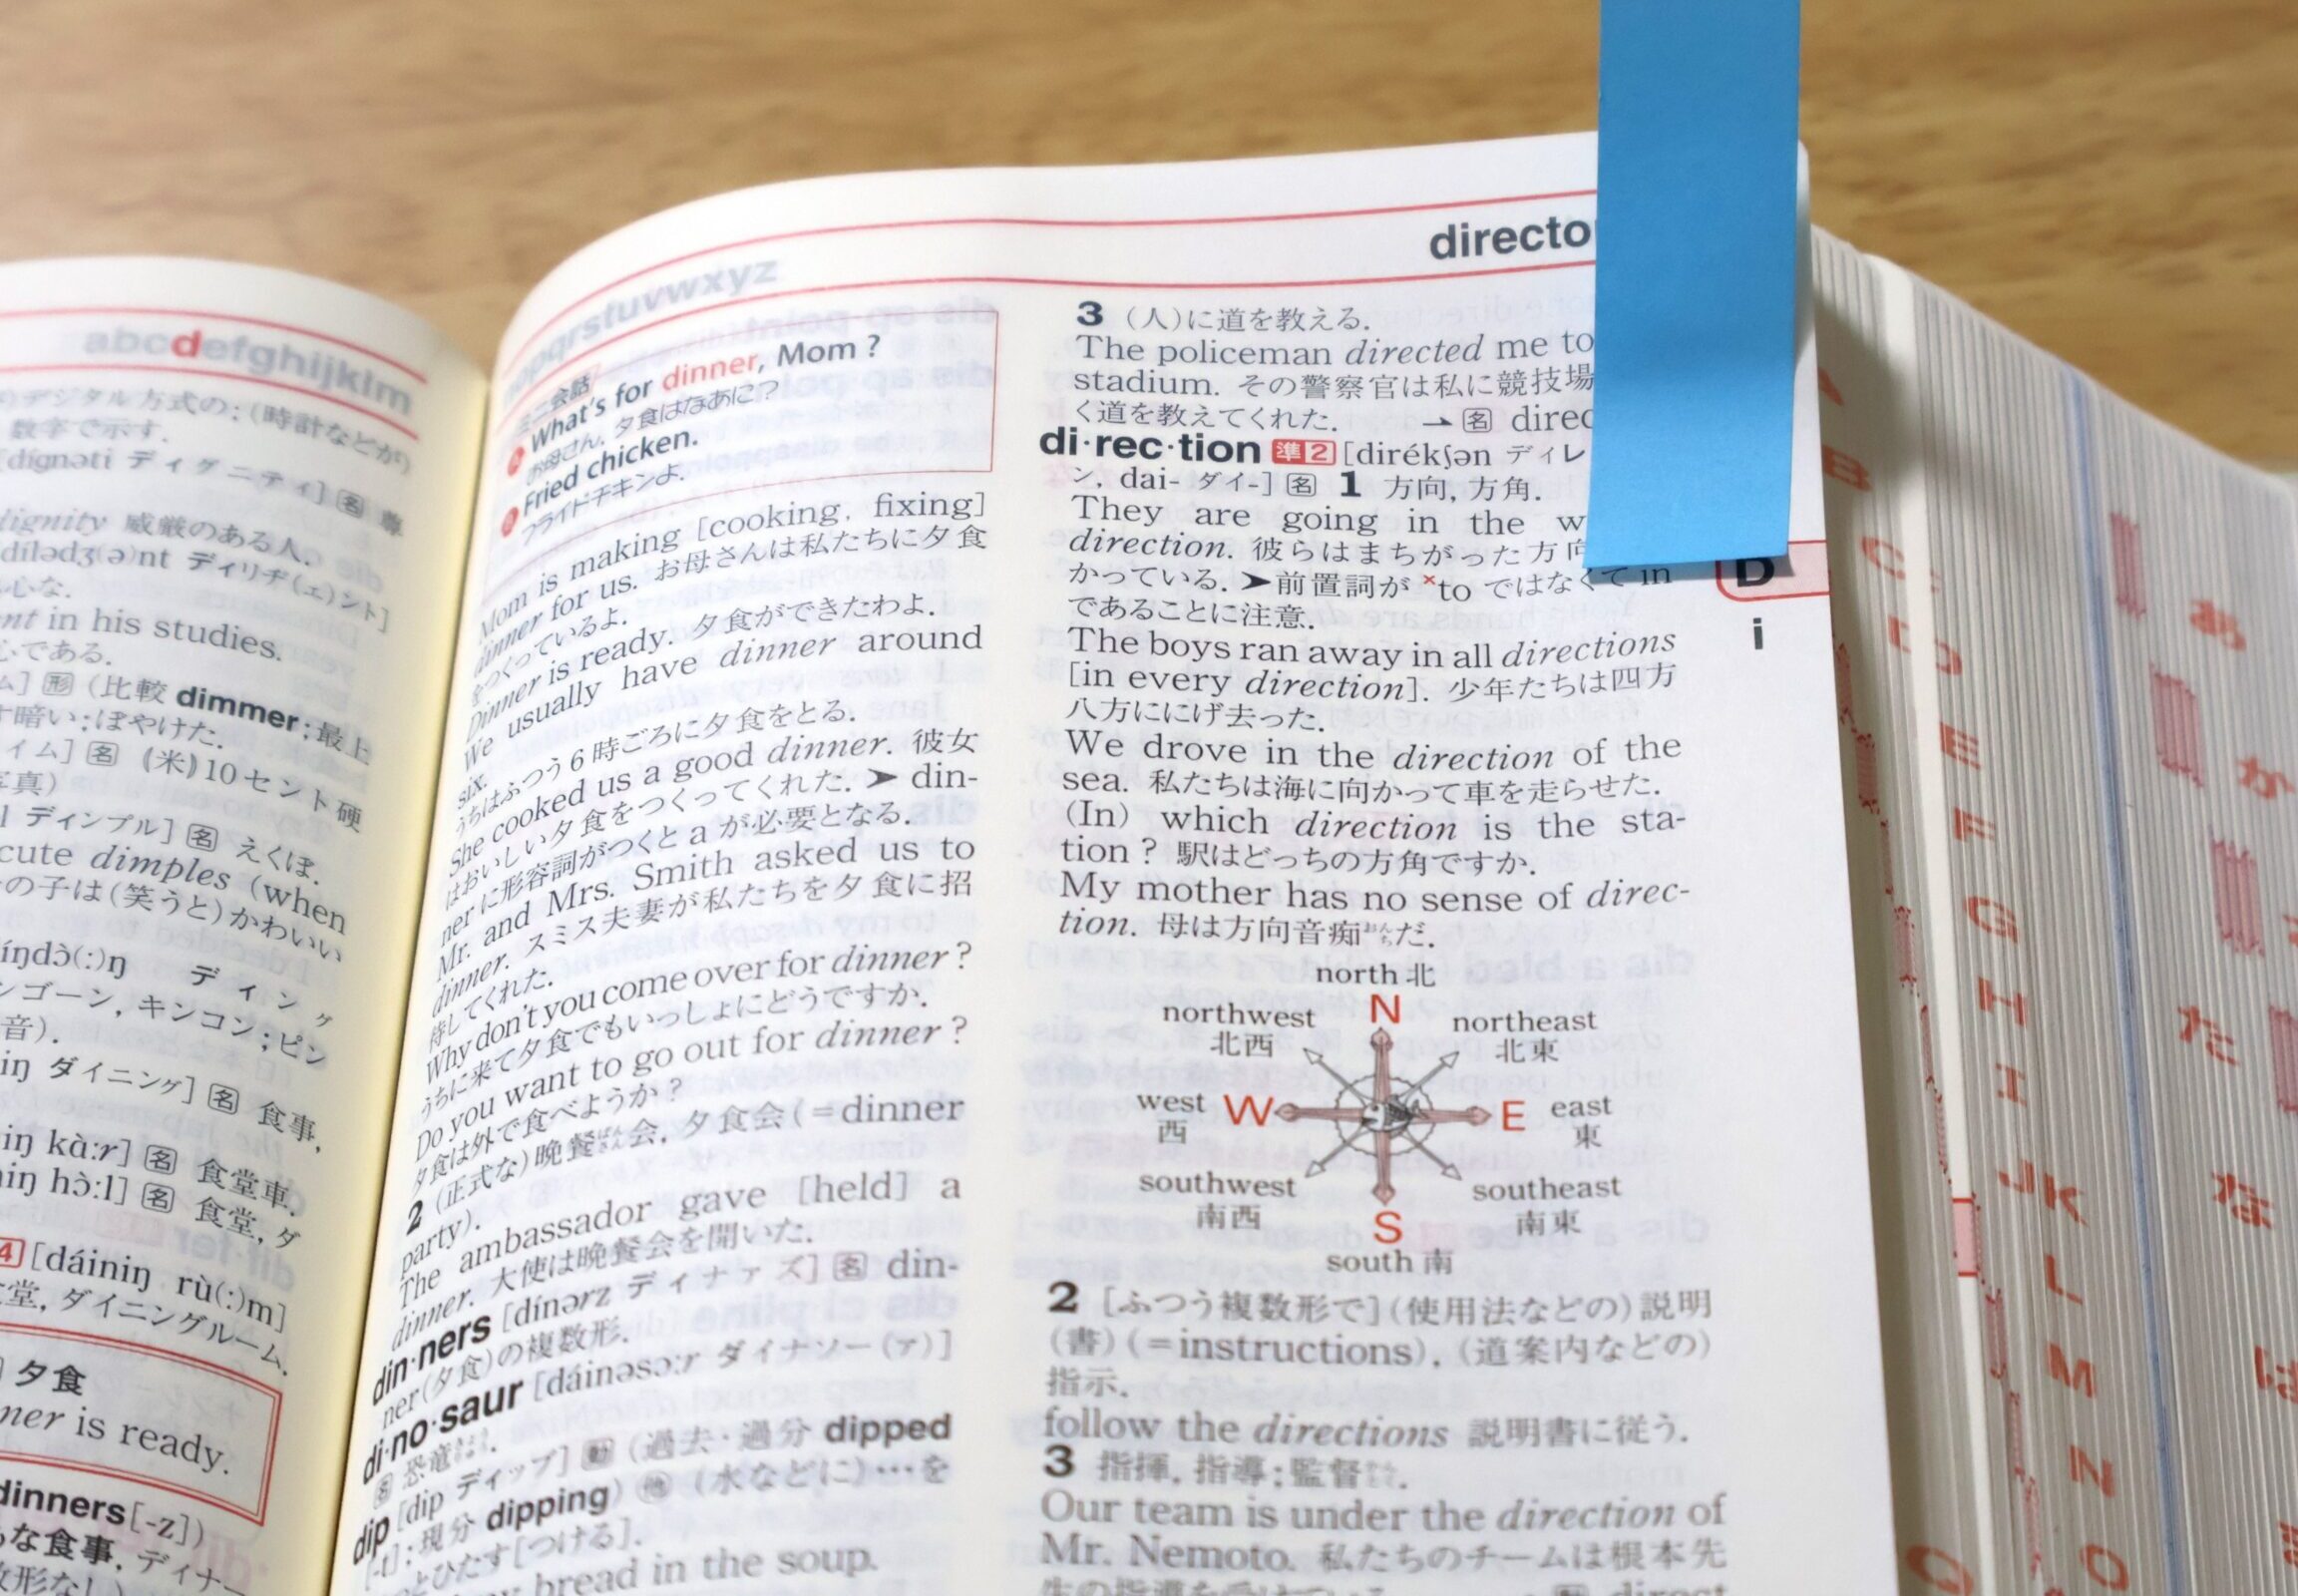 abcdefghijklm
デジタル方式の;(時計などが)
数字で示す.
[dígnəti ディグニティ] 名 尊
dignity 威厳のある人.
dílədʒ(ə)nt ディリヂ(ェ)ント]
心な.
nt in his studies.
心である.
ム] 形 (比較 dimmer; 最上
暗い; ぼやけた.
イム] 名 (米) 10セント硬
写真)
l ディンプル] 名 えくぼ.
cute dimples (when
の子は(笑うと)かわいい
íŋdɔ̀(:)ŋ ディング
ンゴーン, キンコン; ピン
音).
iŋ ダイニング] 名 食事,
iŋ kɑ̀:r] 名 食堂車.
niŋ hɔ̀:l] 名 食堂, ダ
4 [dáiniŋ rù(:)m]
堂, ダイニングルーム.
夕食
ner is ready.
dinners [-z])
な食事, ディナー
数形なし)
nopqrstuvwxyz
ミニ会話
What's for dinner, Mom?
お母さん, 夕食はなあに?
Fried chicken.
フライドチキンよ.
Mom is making [cooking, fixing]
dinner for us. お母さんは私たちに夕食
をつくっているよ.
Dinner is ready. 夕食ができたわよ.
We usually have dinner around
six.
うちはふつう6時ごろに夕食をとる.
She cooked us a good dinner. 彼女
はおいしい夕食をつくってくれた. ➤ din-
ner に形容詞がつくと a が必要となる.
Mr. and Mrs. Smith asked us to
dinner. スミス夫妻が私たちを夕食に招
待してくれた.
Why don't you come over for dinner?
うちに来て夕食でもいっしょにどうですか.
Do you want to go out for dinner?
夕食は外で食べようか?
2 (正式な) 晩餐会, 夕食会 (=dinner
party).
The ambassador gave [held] a
dinner. 大使は晩餐会を開いた.
din·ners [dínərz ディナァズ] 名 din-
ner(夕食)の複数形.
di·no·saur [dáinəsɔ:r ダイナソー(ァ)]
名 恐竜.
dip [dip ディップ] 動 (過去・過分 dipped
[-t]; 現分 dipping) 他 (水などに)…を
とひたす[つける].
bread in the soup.
directo
3 (人)に道を教える.
The policeman directed me to
stadium. その警察官は私に競技場
く道を教えてくれた. → 名 direc
di·rec·tion 準2 [dirékʃən ディレ
ン, dai- ダイ-] 名 1 方向, 方角.
They are going in the w
direction. 彼らはまちがった方向
かっている. ➤前置詞が ×to ではなくて in
であることに注意.
The boys ran away in all directions
[in every direction]. 少年たちは四方
八方ににげ去った.
We drove in the direction of the
sea. 私たちは海に向かって車を走らせた.
(In) which direction is the sta-
tion? 駅はどっちの方角ですか.
My mother has no sense of direc-
tion. 母は方向音痴おんちだ.
north 北
N
northwest
北西
northeast
北東
west
西
W
E
east
東
southwest
南西
southeast
南東
S
south 南
2 [ふつう複数形で] (使用法などの) 説明
(書) (=instructions), (道案内などの)
指示.
follow the directions 説明書に従う.
3 指揮, 指導; 監督.
Our team is under the direction of
Mr. Nemoto. 私たちのチームは根本先
生の指導を受けている. direct
D
i
A
B
C
D
E
F
G
H
I
JK
L
M
N
O
Q
あ
か
た
な
は